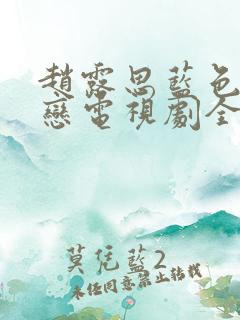 趙露思藍色
戀電視劇全
莫凭藍2
未經同意禁止轉載